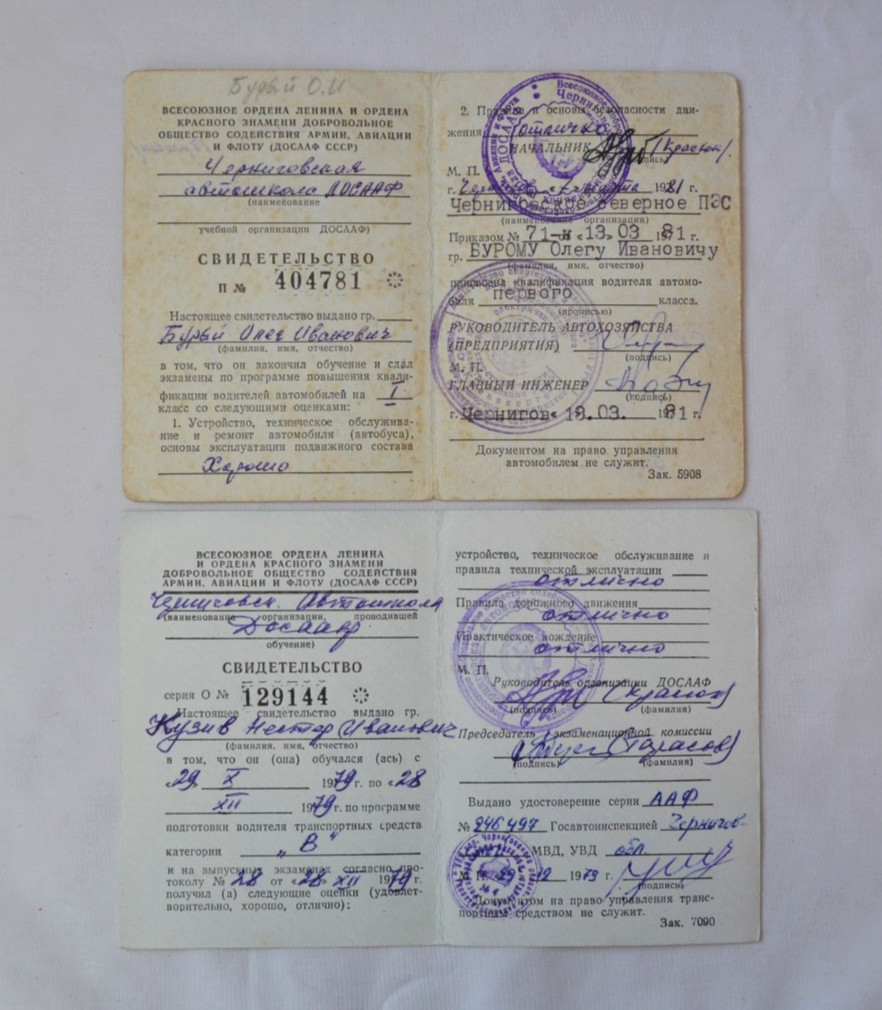 Бурый О.И
ВСЕСОЮЗНОЕ ОРДЕНА ЛЕНИНА И ОРДЕНА
КРАСНОГО ЗНАМЕНИ ДОБРОВОЛЬНОЕ
ОБЩЕСТВО СОДЕЙСТВИЯ АРМИИ, АВИАЦИИ
И ФЛОТУ (ДОСААФ СССР)
Черниговская
автошкола ДОСААФ
(наименование
учебной организации ДОСААФ)
СВИДЕТЕЛЬСТВО
П № 404781
Настоящее свидетельство выдано гр.
Бурый Олег Иванович
(фамилия, имя, отчество)
в том, что он закончил обучение и сдал
экзамены по программе повышения квали-
фикации водителей автомобилей на I
класс со следующими оценками:
1. Устройство, техническое обслужива-
ние и ремонт автомобиля (автобуса),
основы эксплуатации подвижного состава
Хорошо
2. Правила и основы безопасности дви-
жения отлично
НАЧАЛЬНИК (Красюк)
М. П. (подпись)
г. Чернигов 1981 г.
Черниговское Северное ПЭС
(наименование организации)
Приказом № 71-к «13» 03 1981 г.
гр. БУРОМУ Олегу Ивановичу
(фамилия, имя, отчество)
присвоена квалификация водителя автомо-
биля первого класса.
(прописью)
РУКОВОДИТЕЛЬ АВТОХОЗЯЙСТВА
(ПРЕДПРИЯТИЯ)
(подпись)
М. П.
ГЛАВНЫЙ ИНЖЕНЕР
(подпись)
г. Чернигов « 18.03. 1981 г.
Документом на право управления
автомобилем не служит.
Зак. 5908
ВСЕСОЮЗНОЕ ОРДЕНА ЛЕНИНА
И ОРДЕНА КРАСНОГО ЗНАМЕНИ
ДОБРОВОЛЬНОЕ ОБЩЕСТВО СОДЕЙСТВИЯ
АРМИИ, АВИАЦИИ И ФЛОТУ (ДОСААФ СССР)
Черниговск. Автошкола
(наименование организации, проводившей
Досааф
обучение)
СВИДЕТЕЛЬСТВО
серия О № 129144
Настоящее свидетельство выдано гр.
Кузив Нестор Иванович
(фамилия, имя, отчество)
в том, что он (она) обучался (ась) с
«29» X 1979 г. по «28
XII 1979 г. по программе
подготовки водителя транспортных средств
категории „В"
и на выпускных экзаменах согласно про-
токолу № 28 от «28» XII 1979 г.
получил (а) следующие оценки (удовлет-
ворительно, хорошо, отлично):
устройство, техническое обслуживание и
правила технической эксплуатации
отлично
Правила дорожного движения
отлично
Практическое вождение
отлично
М. П.
Руководитель организации ДОСААФ
(Красюк)
(подпись) (фамилия)
Председатель экзаменационной комиссии
(Тарасов)
(подпись) (фамилия)
Выдано удостоверение серии ААФ
№ 246497 Госавтоинспекцией Чернигов-
МВД, УВД обл.
29 12 1979 г.
(подпись)
Документом на право управления транс-
портным средством не служит.
Зак. 7090